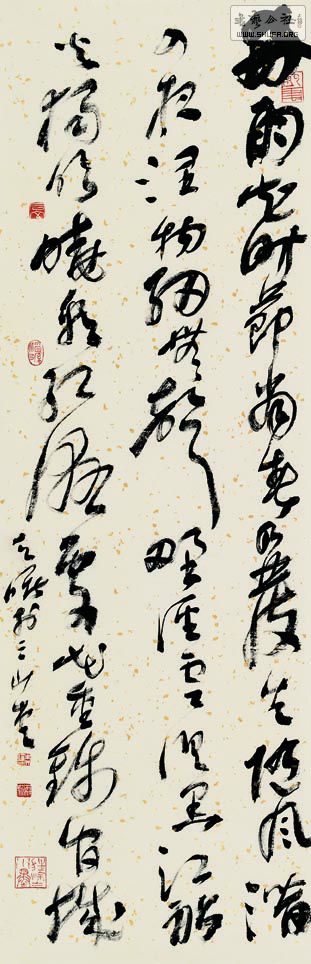 書藝公社
WWW.SHUFA.ORG
好雨知時節當春乃發生随風潛
入夜潤物細無聲野徑雲俱黑江船
火獨明曉看紅濕處花重錦官城
於三山堂